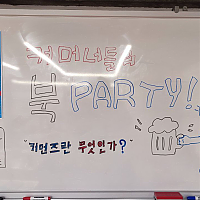 커머너들의
북 PARTY!
"커먼즈란 무엇인가?"